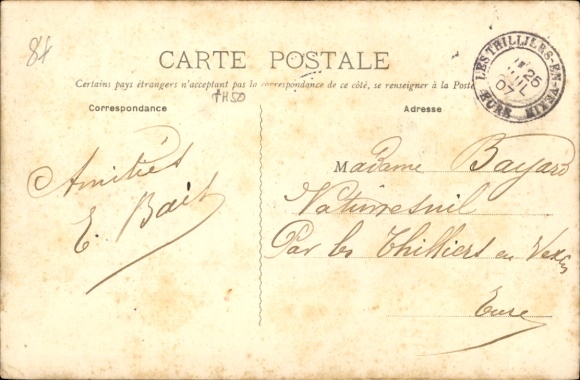 84
CARTE POSTALE
Certains pays étrangers n'acceptant pas la correspondance de ce côté, se renseigner à la Poste
Correspondance
Adresse
LES THILLIERS-EN-VEXIN
25
JUIL
07
EURE
Amitiés
E.
Madame Bayard
Par les Thilliers en Vexin
Eure